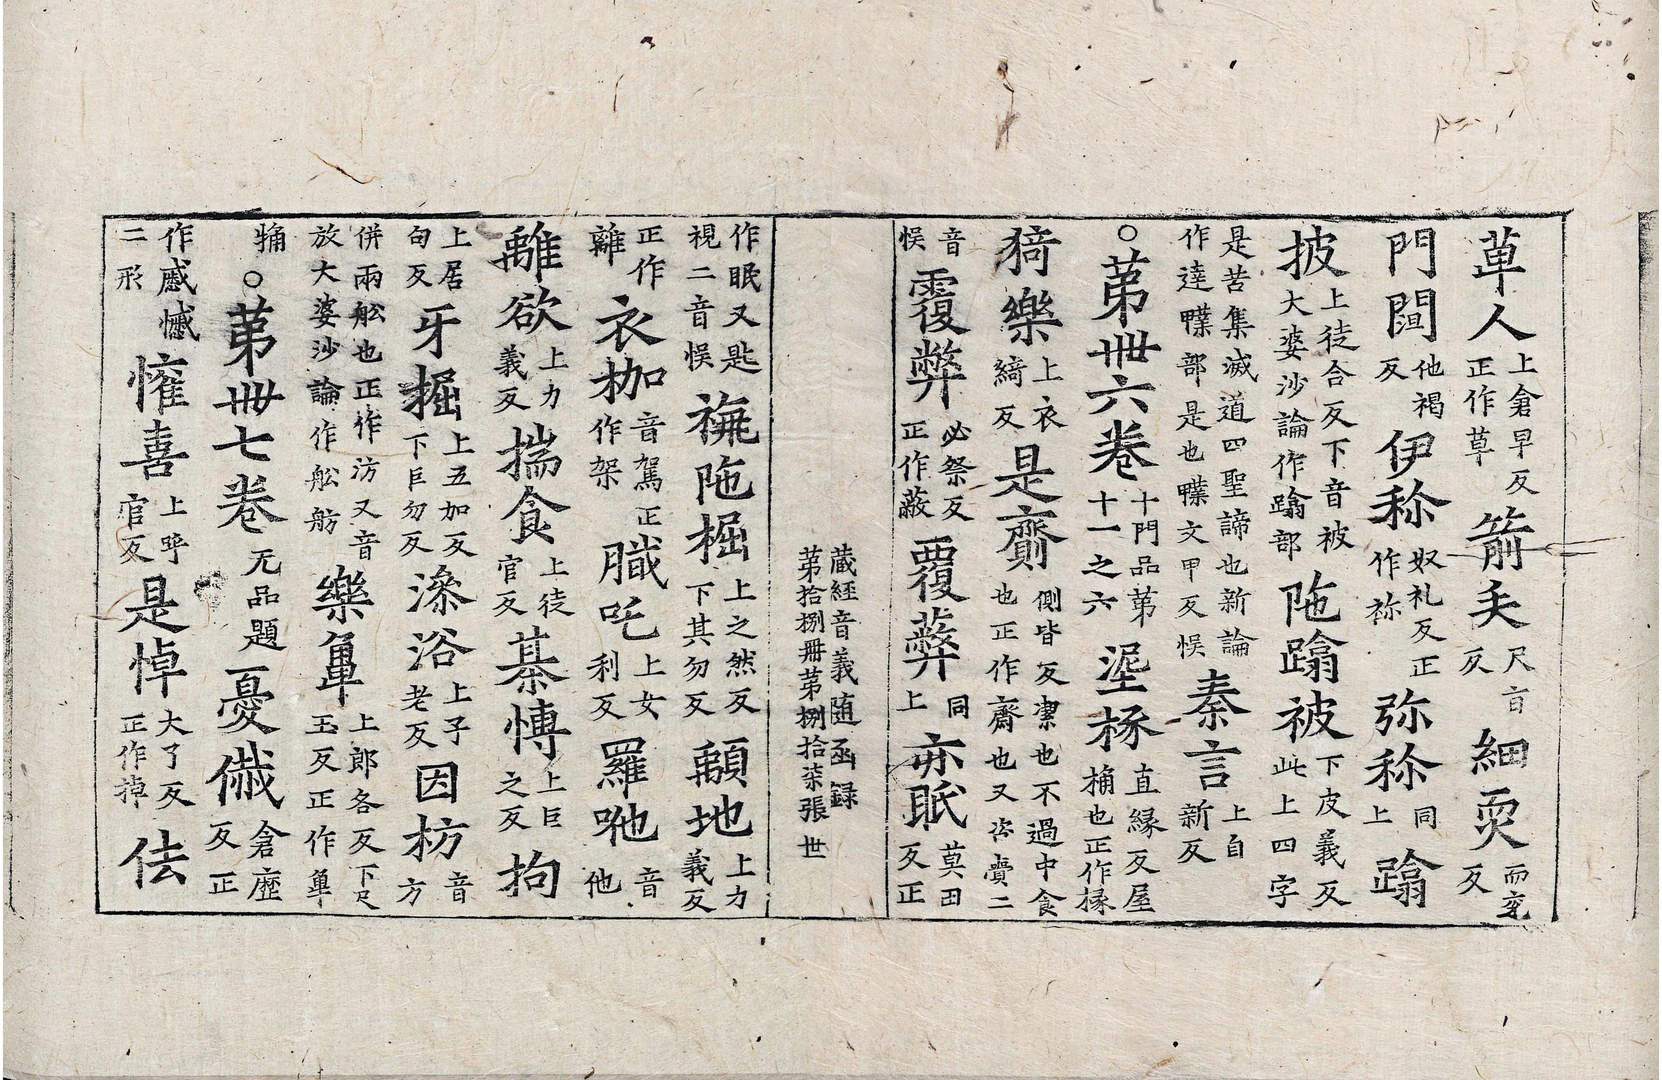 草人上倉早反正作草箭矢尺旨反細耎而兖反
門闥他褐反伊称奴礼反正作祢弥称同上蹹
披上徒合反下音被大婆沙論作蹹部陁蹹被下皮義反此上四字
是苦集滅道四聖諦也新論作達㗼部是也㗼文甲反悮秦言上自新反
○第卅六卷十門品第十一之六埿椽直緣反屋桷也正作椽
猗樂上衣綺反是齋側皆反潔也不過中食也正作齋也又咨賣二
音悮覆弊必祭反正作蔽覆弊同上亦眠莫田反正
藏經音義隨函錄
第拾捌冊第捌拾柒張 世
作眠又匙視二音悮𧝓陁掘上之然反下其勿反顜地上力義反
正作離衣枷音駕正作架膱吒上女利反羅吔音他
離欲上力義反揣食上徒官反綦慱上巨之反拘
上居句反牙掘上五加反下巨勿反㴠浴上子老反因枋音方
併兩舩也正作汸又音放大婆沙論作舩舫樂单上郎各反下尺玉反正作单
觕○第卅七卷无品題憂㦻倉歷反正
作慼慽二形懽喜上呼官反是悼大了反正作掉佉